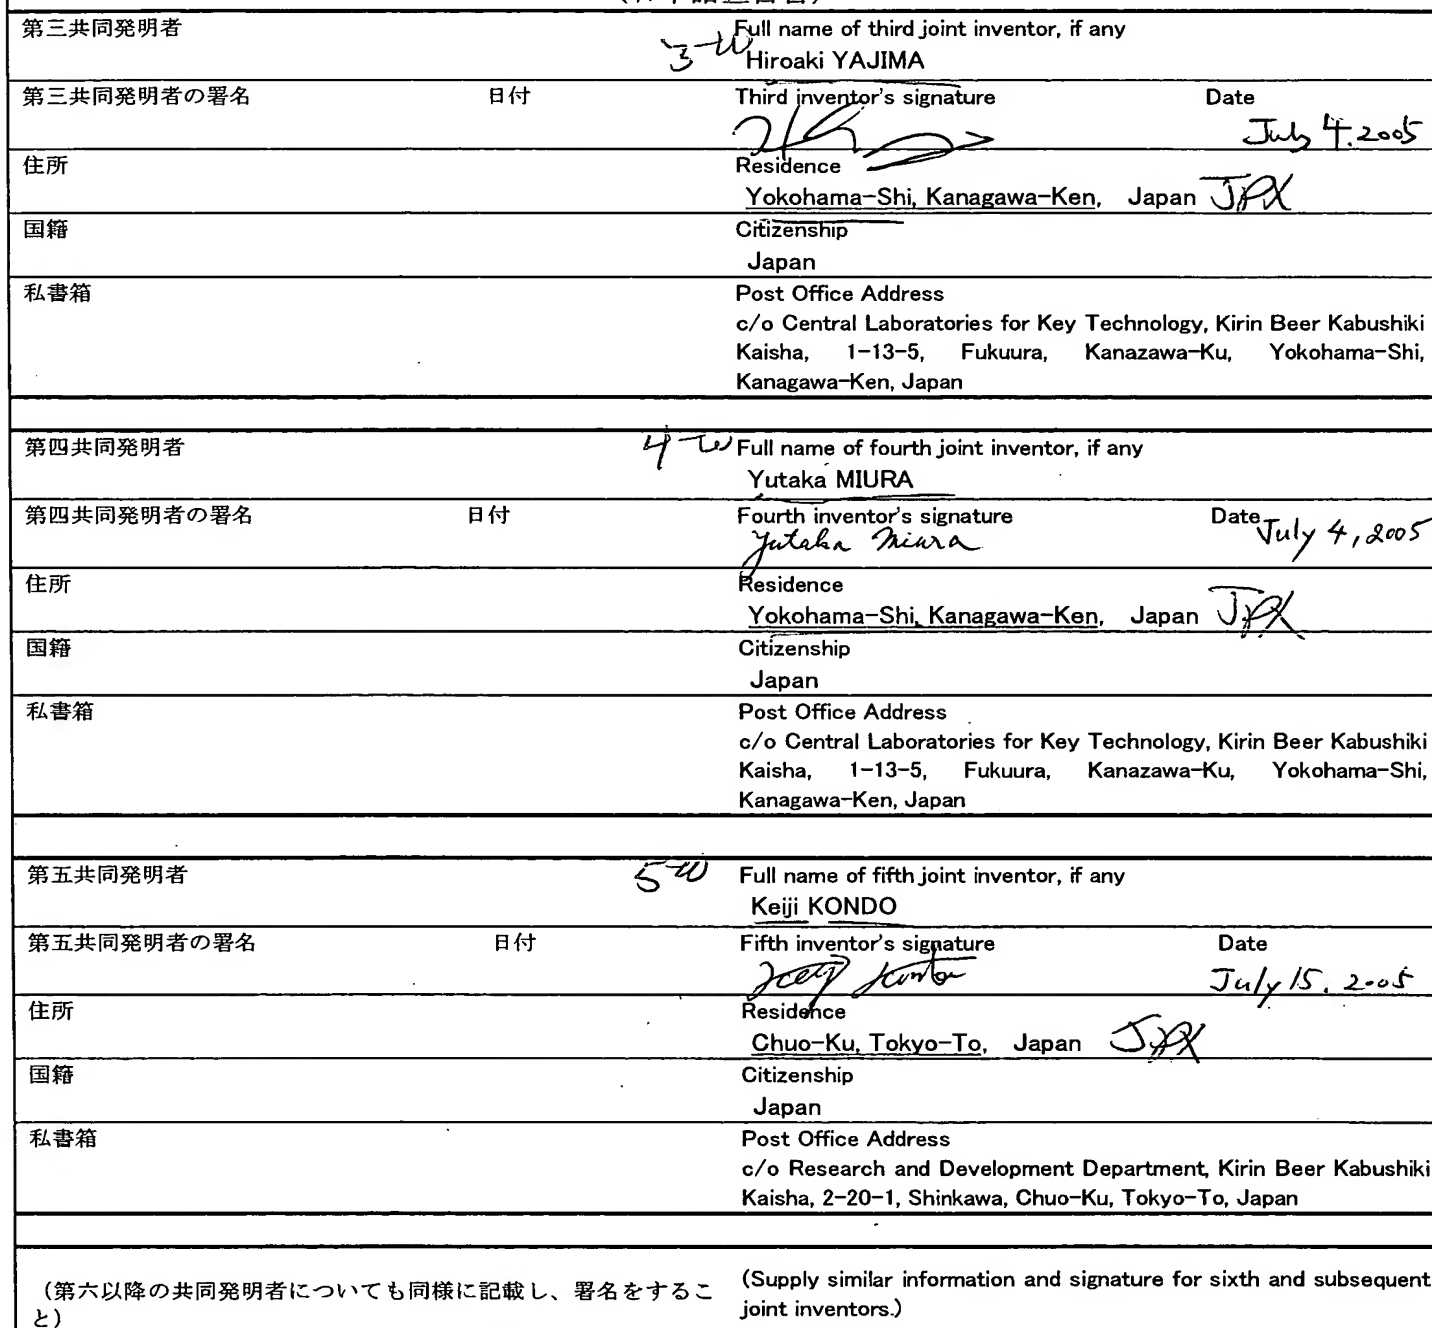 第三共同発明者
3-00 Full name of third joint inventor, if any
Hiroaki YAJIMA
第三共同発明者の署名 日付 Third inventor's signature Date
July 4. 2005
住所 Residence
Yokohama-Shi, Kanagawa-Ken, Japan JPX
国籍 Citizenship
Japan
私書箱 Post Office Address
c/o Central Laboratories for Key Technology, Kirin Beer Kabushiki
Kaisha, 1-13-5, Fukuura, Kanazawa-Ku, Yokohama-Shi,
Kanagawa-Ken, Japan
第四共同発明者
4-00 Full name of fourth joint inventor, if any
Yutaka MIURA
第四共同発明者の署名 日付 Fourth inventor's signature Date July 4, 2005
Yutaka Miura
住所 Residence
Yokohama-Shi, Kanagawa-Ken, Japan JPX
国籍 Citizenship
Japan
私書箱 Post Office Address
c/o Central Laboratories for Key Technology, Kirin Beer Kabushiki
Kaisha, 1-13-5, Fukuura, Kanazawa-Ku, Yokohama-Shi,
Kanagawa-Ken, Japan
第五共同発明者
5-00 Full name of fifth joint inventor, if any
Keiji KONDO
第五共同発明者の署名 日付 Fifth inventor's signature Date
Keiji Kondo July 15. 2005
住所 Residence
Chuo-Ku, Tokyo-To, Japan JPX
国籍 Citizenship
Japan
私書箱 Post Office Address
c/o Research and Development Department, Kirin Beer Kabushiki
Kaisha, 2-20-1, Shinkawa, Chuo-Ku, Tokyo-To, Japan
(第六以降の共同発明者についても同様に記載し、署名をするこ
と)
(Supply similar information and signature for sixth and subsequent
joint inventors.)